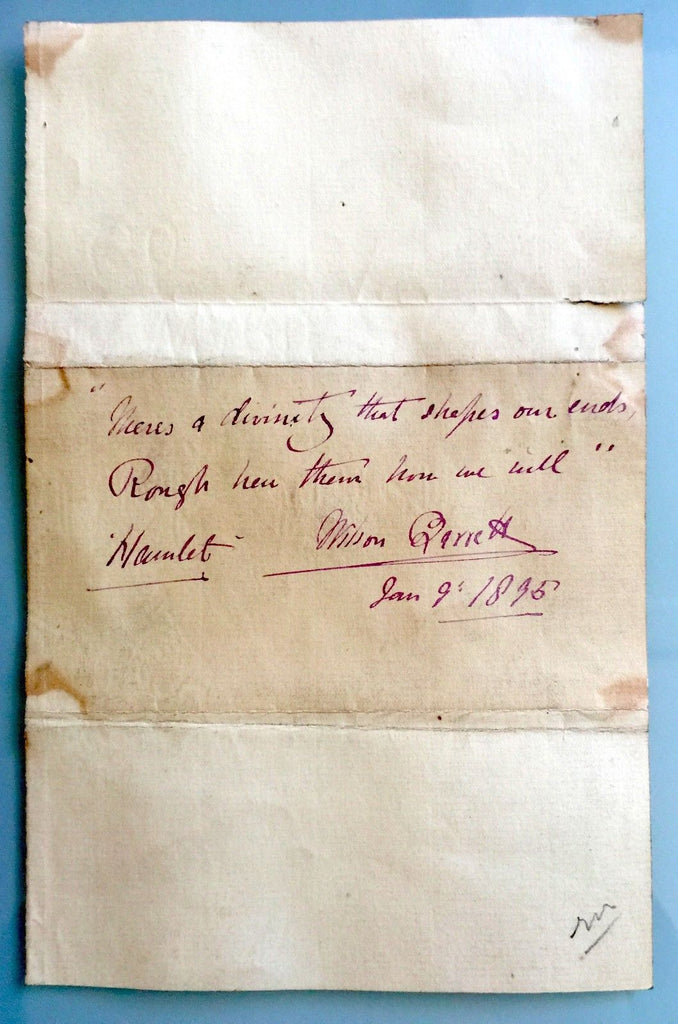 "Theres a divinity that shapes our ends,
Rough hew them how we will"
"Hamlet" Wilson Barrett
Jan 9: 1895